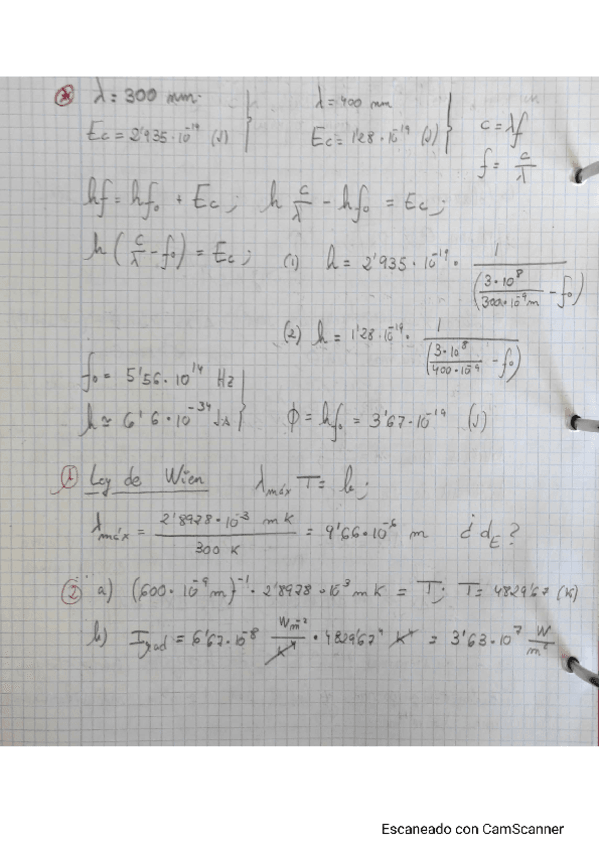 * λ = 300 nm. λ = 400 nm c = λf
Ec = 2'935·10⁻¹⁹ (J) Ec = 1'28·10⁻¹⁹ (J) f = c/λ
hf = hf₀ + Ec; h c/λ - hf₀ = Ec;
h (c/λ - f₀) = Ec; (1) h = 2'935·10⁻¹⁹ · 1/(3·10⁸/300·10⁻⁹m - f₀)
(2) h = 1'28·10⁻¹⁹ · 1/(3·10⁸/400·10⁻⁹ - f₀)
f₀ = 5'56·10¹⁴ Hz
h ≈ 6'6·10⁻³⁴ Js ϕ = hf₀ = 3'67·10⁻¹⁹ (J)
1 Ley de Wien λmáx T = b;
λmáx = 2'8978·10⁻³ m K / 300 K = 9'66·10⁻⁶ m ¿ dE?
2 a) (600·10⁻⁹ m)⁻¹ · 2'8978·10⁻³ m K = T; T = 4829'67 (K)
b) Irad = 5'67·10⁻⁸ W m⁻²/K⁴ · 4829'67⁴ K⁴ = 3'63·10⁷ W/m²
Escaneado con CamScanner